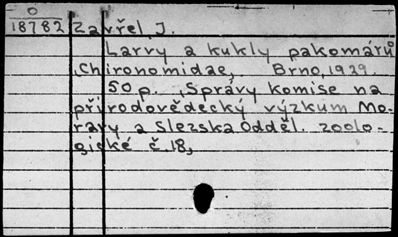 O
18782 Zavřel, J.
Larvy a kukly pakomárů
Chironomidae, Brno, 1939.
50 p. , Správy komise na
přírodovědecký výzkum Mo-
ravy a Slezska Odděl. zoolo-
gické č. 18,